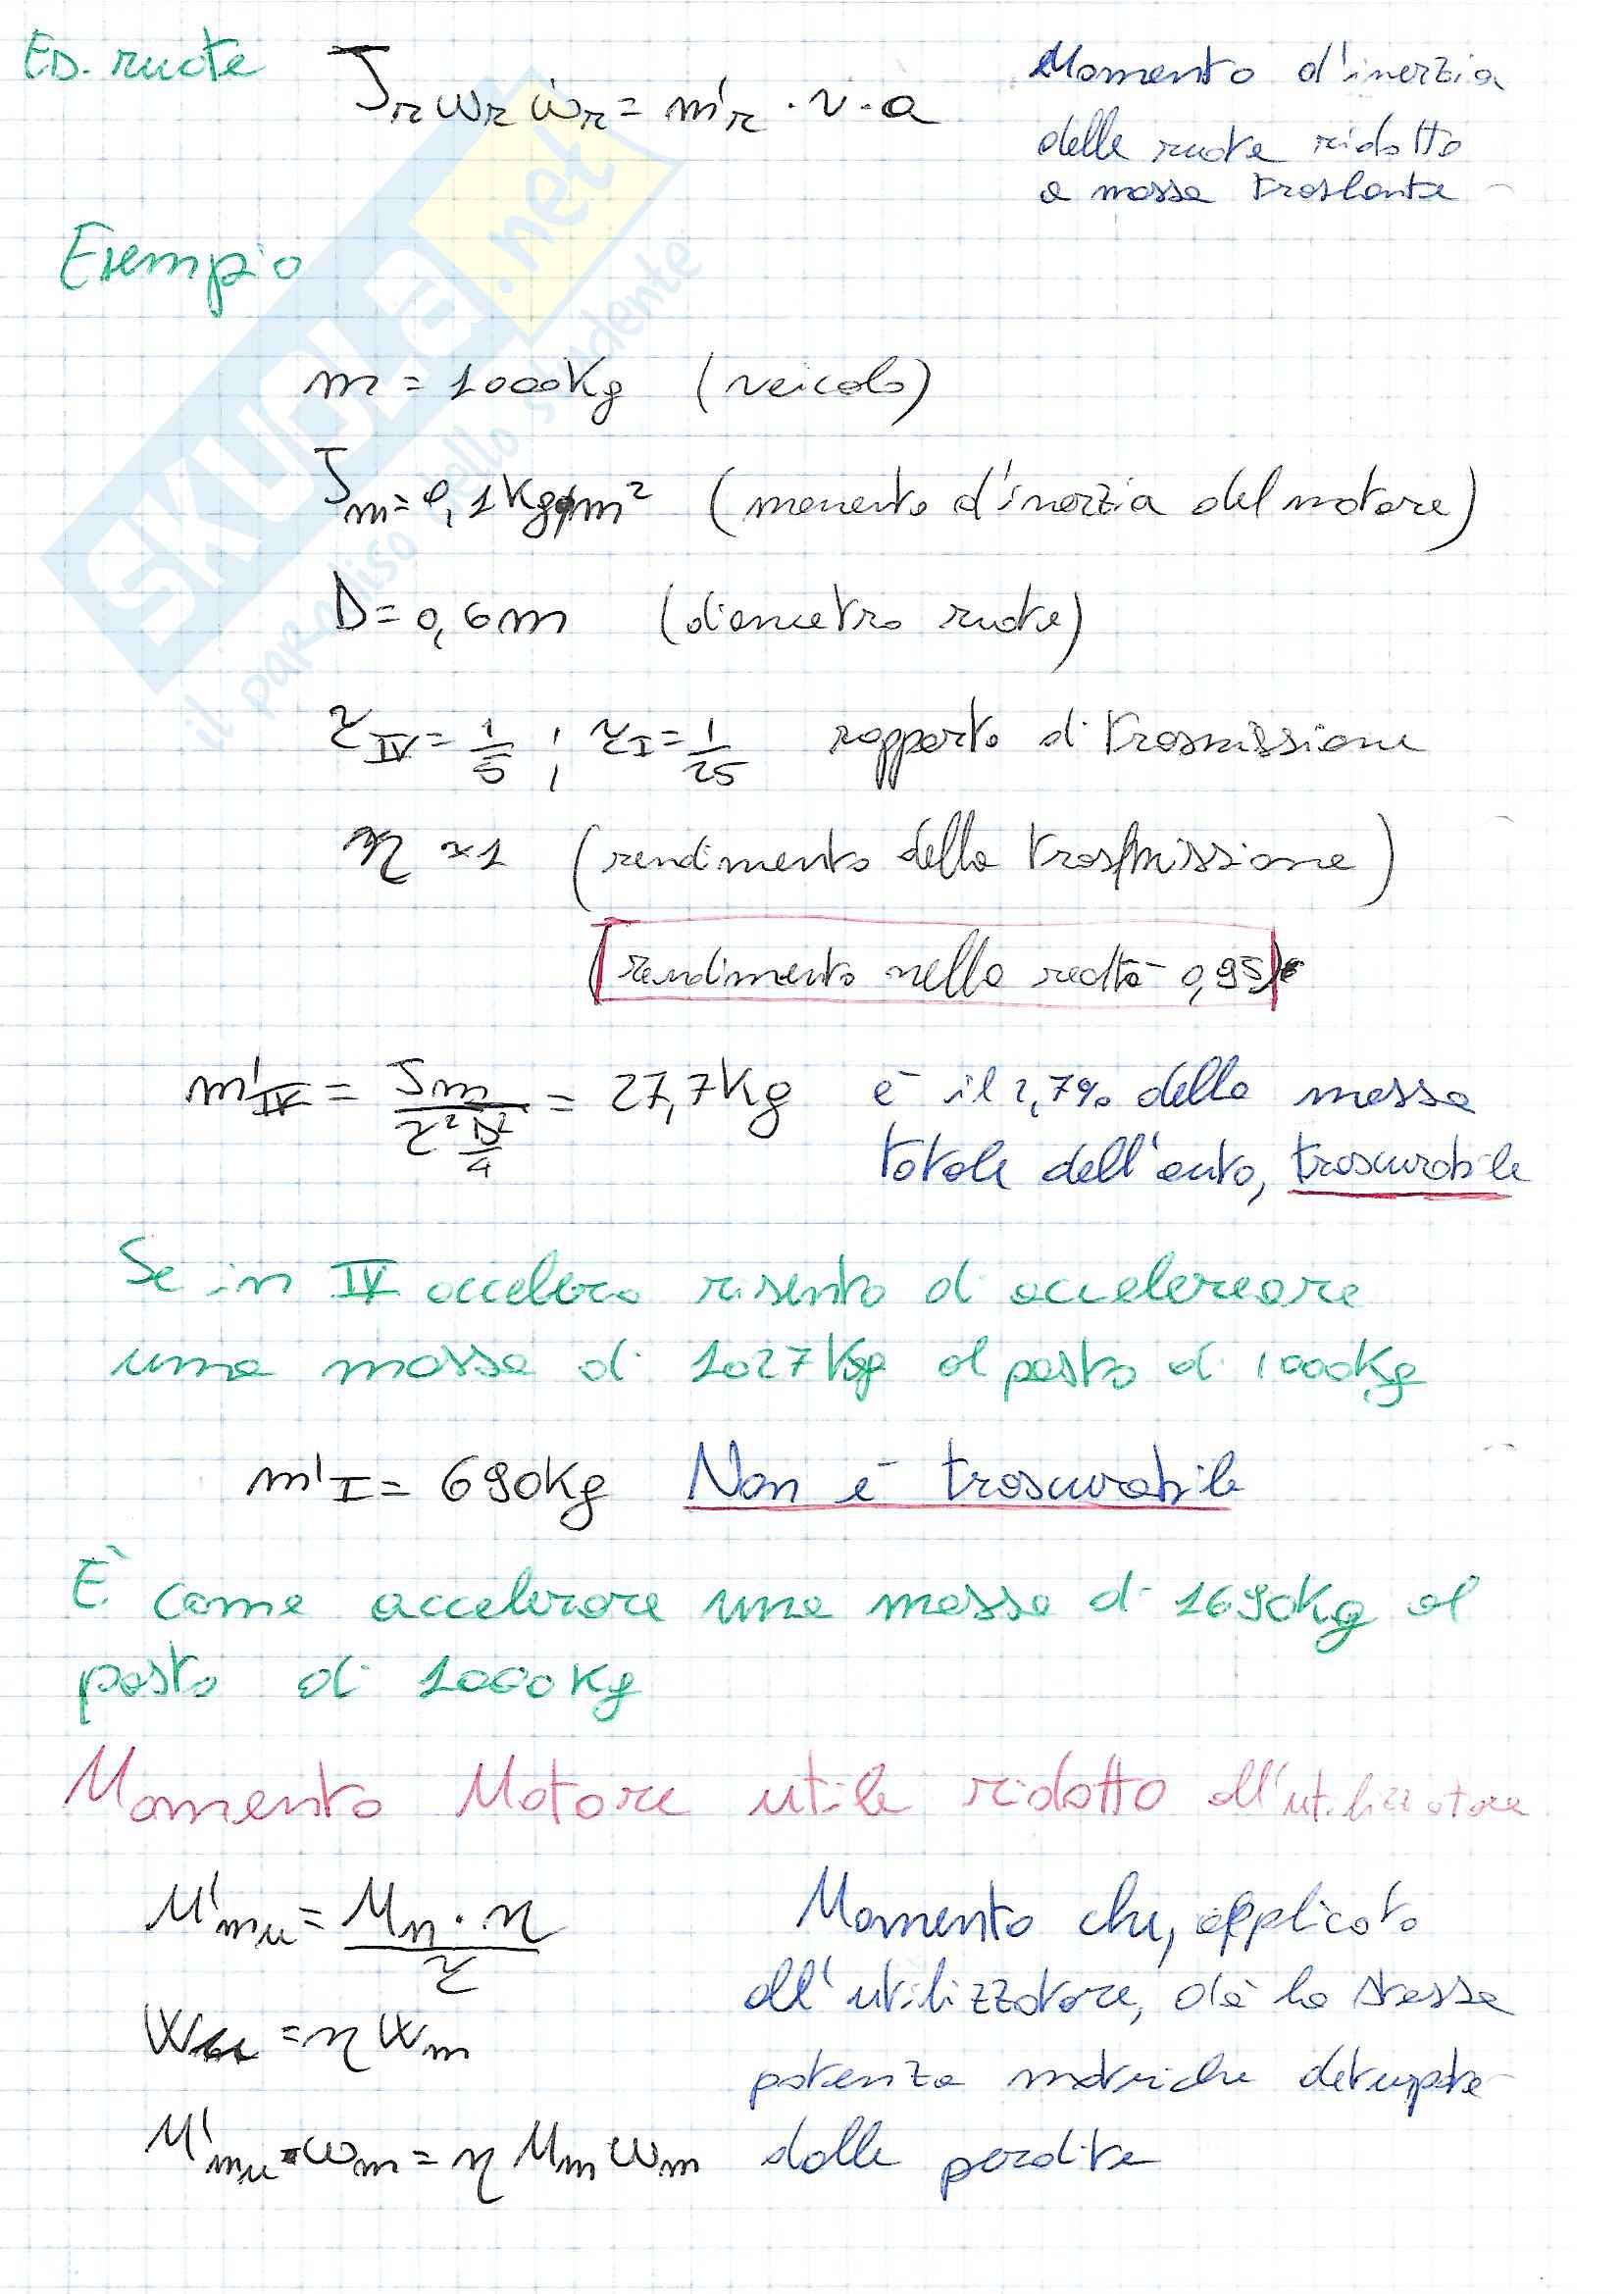 Es. ruote J_r ω_r ω̇_r = m'_r · v · a Momento d'inerzia
delle ruote ridotto
a massa traslante
Esempio
m = 1000Kg (veicolo)
J_m = 0,1 Kg m² (momento d'inerzia del motore)
D = 0,6m (diametro ruote)
τ_IV = 1/5 ; τ_I = 1/25 rapporto di trasmissione
η ≈ 1 (rendimento della trasmissione)
(rendimento nella realtà 0,95)
m'_IV = J_m / (τ² D²/4) = 27,7Kg è il 2,7% della massa
totale dell'auto, trascurabile
Se in IV accelero risento di accelereare
una massa di 1027Kg al posto di 1000Kg
m'_I = 690Kg Non è trascurabile
È come accelerare una massa di 1690Kg al
posto di 1000Kg
Momento Motore utile ridotto all'utilizzatore
M'_mu = M_m · η / τ Momento che, applicato
all'utilizzatore, dà la stessa
W_u = η W_m
potenza motrice deturpata
M'_mu · ω_m = η M_m ω_m dalle perdite
SKUOLA.net
il paradiso dello studente